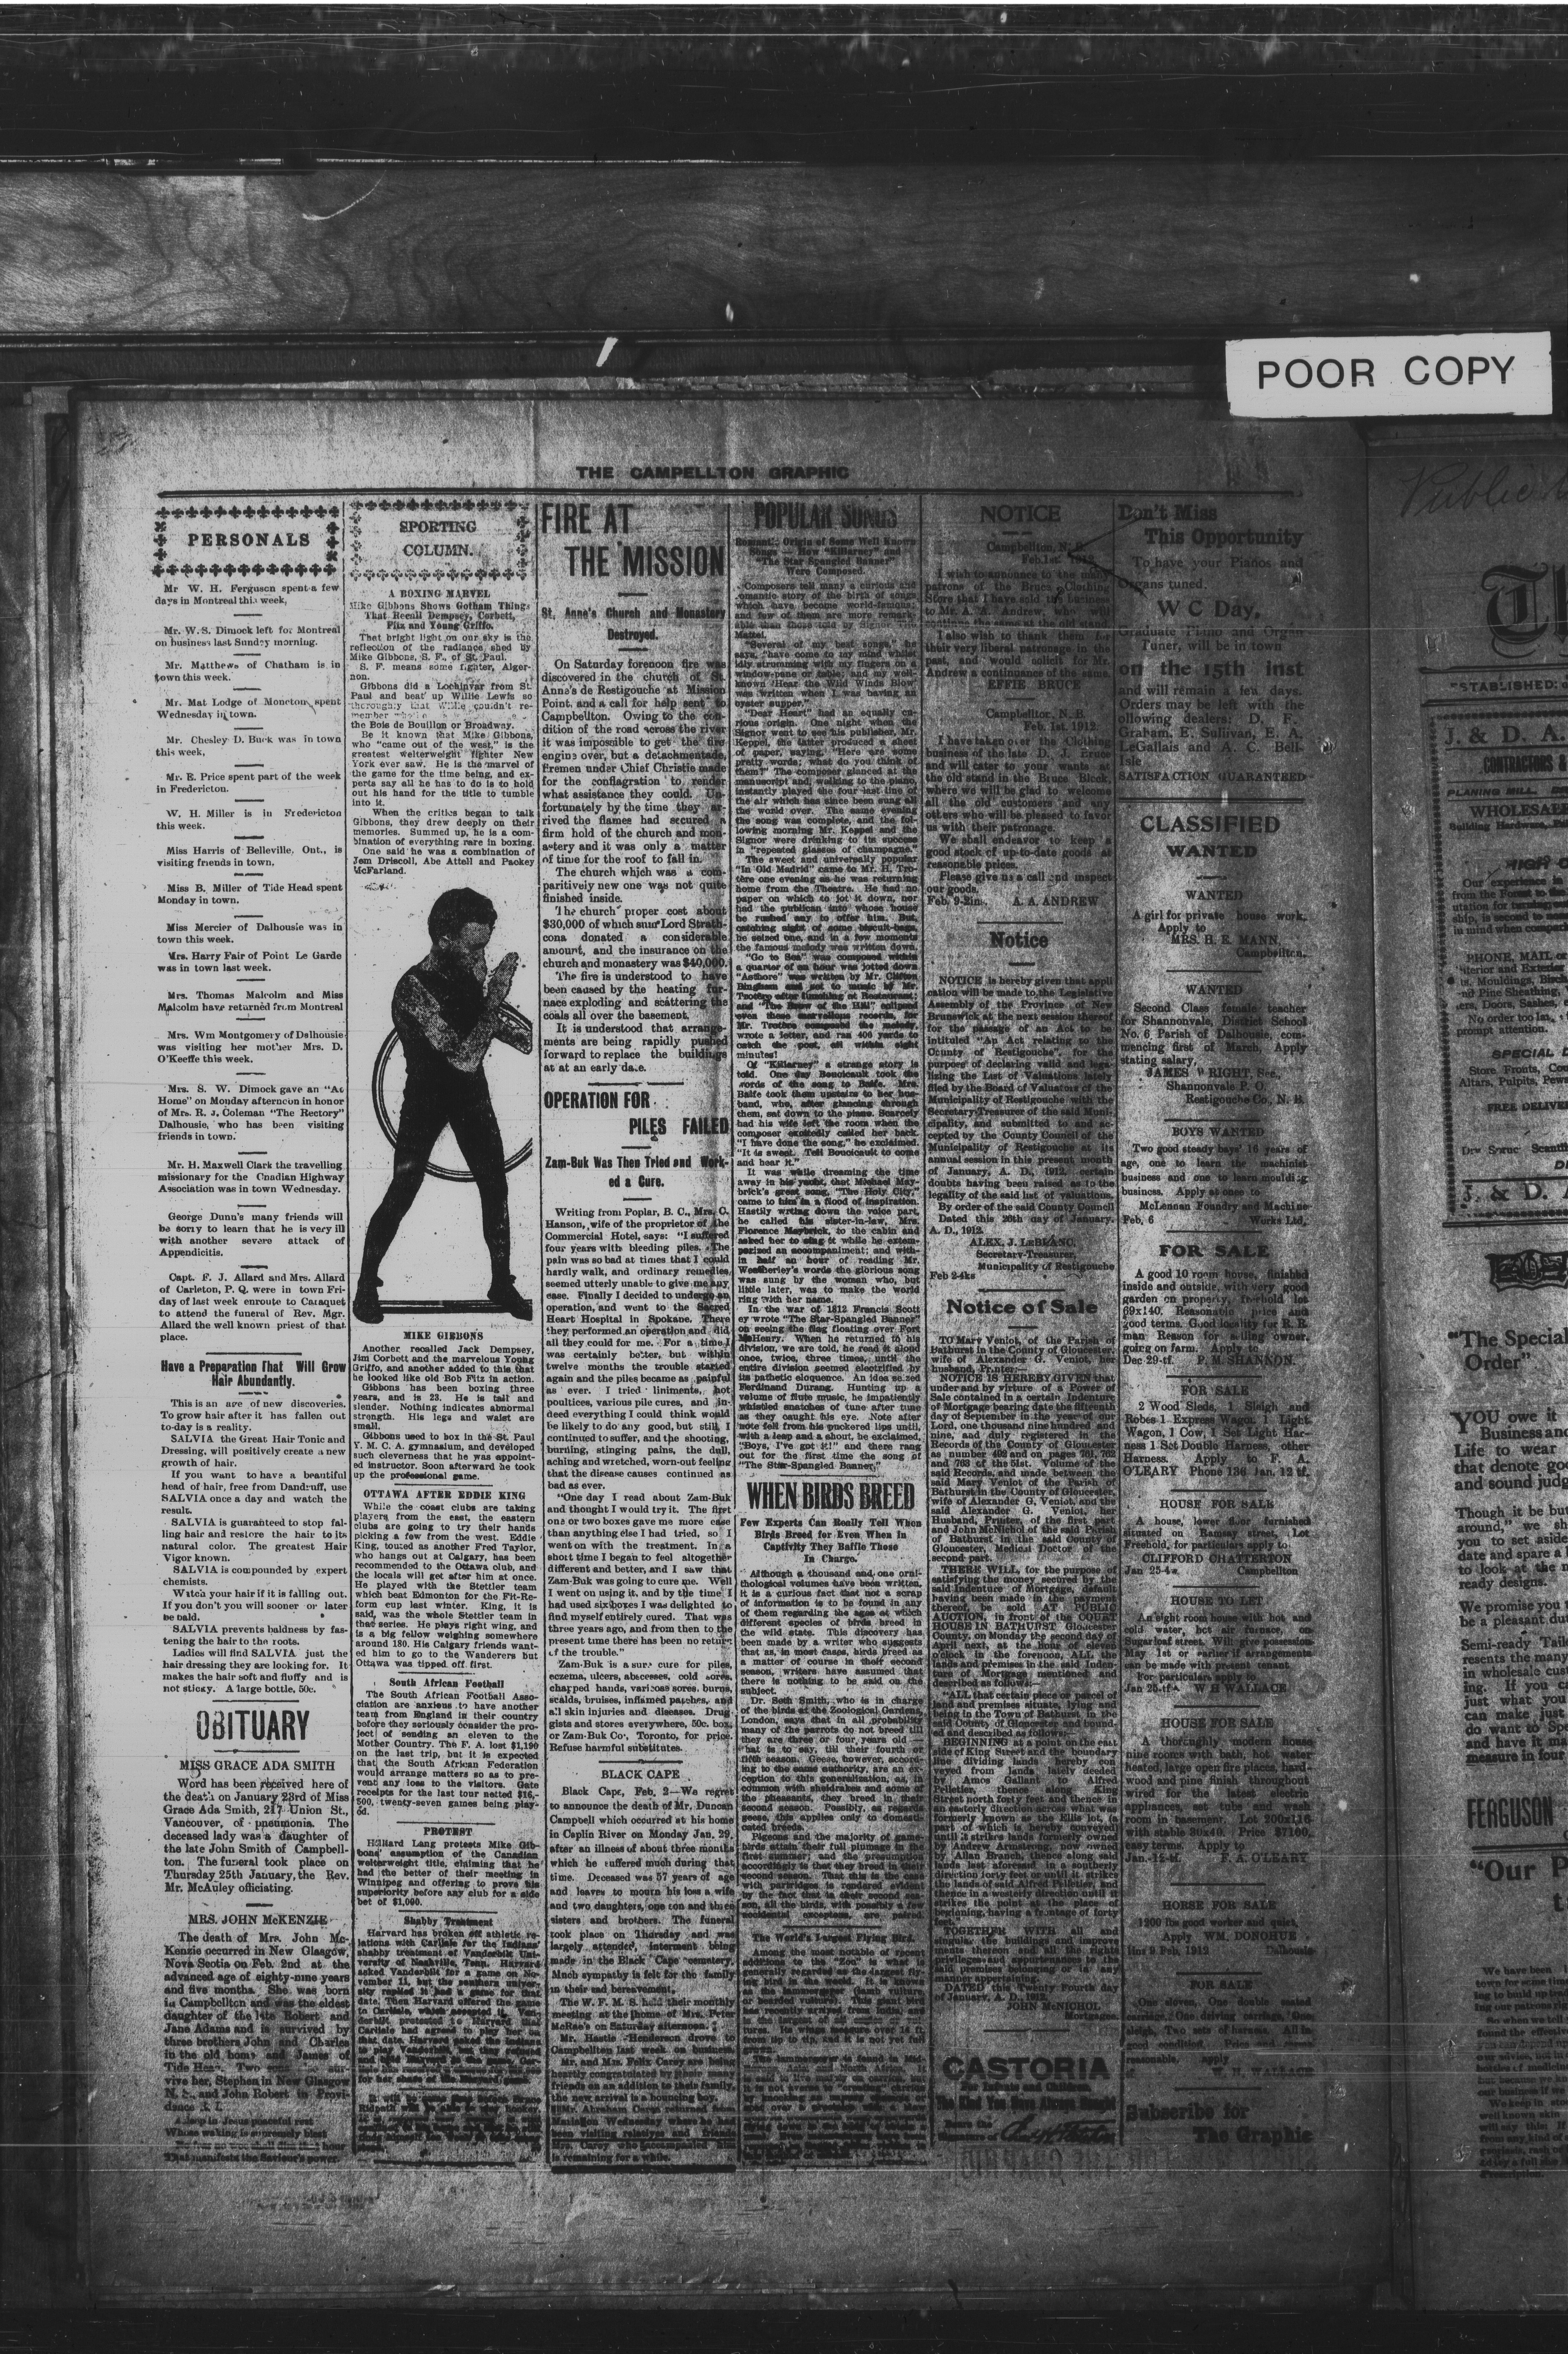 POOR COPY
THE CAMPELLTON GRAPHIC
PERSONALS
Mr W. H. Ferguson spent a few
days in Montreal this week,
Mr. W. S. Dimock left for Montreal
on business last Sunday morning.
Mr. Matthews of Chatham is in
town this week.
Mr. Mat Lodge of Moncton spent
Wednesday in town.
Mr. Chesley D. Buck was in town
this week,
Mr. E. Price spent part of the week
in Fredericton.
W. H. Miller is in Fredericton
this week.
Miss Harris of Belleville, Ont., is
visiting friends in town,
Miss B. Miller of Tide Head spent
Monday in town.
Miss Mercier of Dalhousie was in
town this week.
Mrs. Harry Fair of Point Le Garde
was in town last week.
Mrs. Thomas Malcolm and Miss
Malcolm have returned from Montreal
Mrs. Wm Montgomery of Dalhousie
was visiting her mother Mrs. D.
O'Keeffe this week.
Mrs. S. W. Dimock gave an "At
Home" on Monday afternoon in honor
of Mrs. R. J. Coleman "The Rectory"
Dalhousie, who has been visiting
friends in town.
Mr. H. Maxwell Clark the travelling
missionary for the Cnadian Highway
Association was in town Wednesday.
George Dunn's many friends will
be sorry to learn that he is very ill
with another severe attack of
Appendicitis.
Capt. F. J. Allard and Mrs. Allard
of Carleton, P. Q. were in town Fri-
day of last week enroute to Caraquet
to attend the funeral of Rev. Mgr.
Allard the well known priest of that
place.
Have a Preparation That Will Grow
Hair Abundantly.
This is an age of new discoveries.
To grow hair after it has fallen out
to-day is a reality.
SALVIA the Great Hair Tonic and
Dressing, will positively create a new
growth of hair.
If you want to have a beautiful
head of hair, free from Dandruff, use
SALVIA once a day and watch the
result.
SALVIA is guaranteed to stop fal-
ling hair and restore the hair to its
natural color. The greatest Hair
Vigor known.
SALVIA is compounded by expert
chemists.
Watch your hair if it is falling out.
If you don't you will sooner or later
be bald.
SALVIA prevents baldness by fas-
tening the hair to the roots.
Ladies will find SALVIA just the
hair dressing they are looking for. It
makes the hair soft and fluffy and is
not sticky. A large bottle, 50c.
OBITUARY
MISS GRACE ADA SMITH
Word has been received here of
the death on January 23rd of Miss
Grace Ada Smith, 217 Union St.,
Vancouver, of pneumonia. The
deceased lady was a daughter of
the late John Smith of Campbell-
ton. The funeral took place on
Thursday 25th January, the Rev.
Mr. McAuley officiating.
MRS. JOHN McKENZIE
The death of Mrs. John Mc-
Kenzie occurred in New Glasgow,
Nova Scotia on Feb. 2nd at the
advanced age of eighty-nine years
and five months. She was born
in Campbellton and was the eldest
daughter of the late Robert and
Jane Adams and is survived by
three brothers John and Charles
in the old home and James of
Tide Head. Two sons sur-
vive her, Stephen in New Glasgow
N. S., and John Robert in Provi-
dence
Asleep in Jesus peaceful rest
Whose waking is supremely blest
hour
That manifests the Saviour's power.
SPORTING
COLUMN.
A BOXING MARVEL
Mike Gibbons Shows Gotham Things
That Recall Dempsey, Corbett,
Fitz and Young Griffo.
That bright light on our sky is the
reflection of the radiance shed by
Mike Gibbons, S. F., of St. Paul.
S. F. means some fighter, Alger-
non.
Gibbons did a Lochinvar from St.
Paul and beat up Willie Lewis so
thoroughly that Willie couldn't re-
member
the Bois de Bouillon or Broadway.
Be it known that Mike Gibbons,
who "came out of the west," is the
greatest welterweight fighter New
York ever saw. He is the marvel of
the game for the time being, and ex-
perts say all he has to do is to hold
out his hand for the title to tumble
into it.
When the critics began to talk
Gibbons, they drew deeply on their
memories. Summed up, he is a com-
bination of everything rare in boxing.
One said he was a combination of
Jem Driscoll, Abe Attell and Packey
McFarland.
MIKE GIBBONS
Another recalled Jack Dempsey,
Jim Corbett and the marvelous Young
Griffo, and another added to this that
he looked like old Bob Fitz in action.
Gibbons has been boxing three
years, and is 23. He is tall and
slender. Nothing indicates abnormal
strength. His legs and waist are
small.
Gibbons used to box in the St. Paul
Y. M. C. A. gymnasium, and developed
such cleverness that he was appoint-
ed instructor. Soon afterward he took
up the professional game.
OTTAWA AFTER EDDIE KING
While the coast clubs are taking
players from the east, the eastern
clubs are going to try their hands
picking a few from the west. Eddie
King, touted as another Fred Taylor,
who hangs out at Calgary, has been
recommended to the Ottawa club, and
the locals will get after him at once.
He played with the Stettler team
which beat Edmonton for the Fit-Re-
form cup last winter. King, it is
said, was the whole Stettler team in
that series. He plays right wing, and
is a big fellow weighing somewhere
around 180. His Calgary friends want-
ed him to go to the Wanderers but
Ottawa was tipped off first.
South African Football
The South African Football Asso-
ciation are anxious to have another
team from England in their country
before they seriously consider the pro-
ject of sending an eleven to the
Mother Country. The F. A. lost $1,190
on the last trip, but it is expected
that the South African Federation
would arrange matters so as to pre-
vent any loss to the visitors. Gate
receipts for the last tour netted $16,-
500, twenty-seven games being play-
ed.
PROTEST
Hilliard Lang protests Mike Gib-
bons' assumption of the Canadian
welterweight title, claiming that he
had the better of their meeting in
Winnipeg and offering to prove his
superiority before any club for a side
bet of $1,000.
Shabby Treatment
Harvard has broken off athletic re-
lations with Carlisle for the Indians'
shabby treatment of Vanderbilt Uni-
versity of Nashville, Tenn. Harvard
asked Vanderbilt for a game on No-
vember 11, but the southern univer-
sity replied it had a game for that
date. Then Harvard offered the game
to Carlisle, which accepted it. Van-
derbilt protested to Harvard that
Carlisle had agreed to play her on
that date. Harvard asked the Indians
to play Vanderbilt, but they refused
FIRE AT
THE MISSION
St. Anne's Church and Monastery
Destroyed.
On Saturday forenoon fire was
discovered in the church of St.
Anne's de Restigouche at Mission
Point, and a call for help sent to
Campbellton. Owing to the con-
dition of the road across the river
it was impossible to get the fire
engine over, but a detachment of
firemen under Chief Christie made
for the conflagration to render
what assistance they could. Un-
fortunately by the time they ar-
rived the flames had secured a
firm hold of the church and mon-
astery and it was only a matter
of time for the roof to fall in.
The church which was a com-
paritively new one was not quite
finished inside.
The church proper cost about
$30,000 of which sum Lord Strath-
cona donated a considerable
amount, and the insurance on the
church and monastery was $40,000.
The fire is understood to have
been caused by the heating fur-
nace exploding and scattering the
coals all over the basement.
It is understood that arrange-
ments are being rapidly pushed
forward to replace the buildings
at at an early date.
OPERATION FOR
PILES FAILED
Zam-Buk Was Then Tried and Work-
ed a Cure.
Writing from Poplar, B. C., Mrs. C.
Hanson, wife of the proprietor of the
Commercial Hotel, says: "I suffered
four years with bleeding piles. The
pain was so bad at times that I could
hardly walk, and ordinary remedies
seemed utterly unable to give me any
ease. Finally I decided to undergo an
operation, and went to the Sacred
Heart Hospital in Spokane. There
they performed an operation and did
all they could for me. For a time I
was certainly better, but within
twelve months the trouble started
again and the piles became as painful
as ever. I tried liniments, hot
poultices, various pile cures, and in-
deed everything I could think would
be likely to do any good, but still I
continued to suffer, and the shooting,
burning, stinging pains, the dull,
aching and wretched, worn-out feeling
that the disease causes continued as
bad as ever.
"One day I read about Zam-Buk
and thought I would try it. The first
one or two boxes gave me more ease
than anything else I had tried, so I
went on with the treatment. In a
short time I began to feel altogether
different and better, and I saw that
Zam-Buk was going to cure me. Well
I went on using it, and by the time I
had used six boxes I was delighted to
find myself entirely cured. That was
three years ago, and from then to the
present time there has been no return
of the trouble."
Zam-Buk is a sure cure for piles,
eczema, ulcers, abscesses, cold sores,
chapped hands, varicose sores, burns,
scalds, bruises, inflamed patches, and
all skin injuries and diseases. Drug-
gists and stores everywhere, 50c. box,
or Zam-Buk Co., Toronto, for price.
Refuse harmful substitutes.
BLACK CAPE
Black Cape, Feb. 2—We regret
to announce the death of Mr. Duncan
Campbell which occurred at his home
in Caplin River on Monday Jan. 29,
after an illness of about three months
which he suffered much during that
time. Deceased was 57 years of age
and leaves to mourn his loss a wife
and two daughters, one son and three
sisters and brothers. The funeral
took place on Thursday and was
largely attended, interment being
made in the Black Cape cemetery.
Much sympathy is felt for the family
in their sad bereavement.
The W. F. M. S. held their monthly
meeting at the home of Mrs. Peter
McRae's on Saturday afternoon.
Mr. Hastie Henderson drove to
Campbellton last week on business.
Mr. and Mrs. Felix Carey are being
heartly congratulated by their many
friends on an addition to their family,
the new arrival is a bouncing boy.
Mr. Abraham Carey returned from
on Wednesday where he had
been visiting relatives and friends
Mrs. Carey who accompanied him
is remaining for a while.
POPULAR SONGS
Romantic Origin of Some Well Known
Songs — How "Killarney" and
"The Star Spangled Banner"
Were Composed.
Composers tell many a curious and
romantic story of the birth of songs
which have become world-famous;
and few of them are more remark-
able than those told by Signor Tito
Mattei.
"Several of my best songs," he
says, "have come to my mind whilst
idly strumming with my fingers on a
window-pane or table; and my well-
known 'Hear the Wild Winds Blow'
was written when I was having an
oyster supper."
"Dear Heart" had an equally cu-
rious origin. One night when the
Signor went to see his publisher, Mr.
Keppel, the latter produced a sheet
of paper, saying, "Here are some
pretty words; what do you think of
them?" The composer glanced at the
manuscript and, walking to the piano,
instantly played the four last line of
the air which has since been sung all
the world over. The same evening
the song was complete, and the fol-
lowing morning Mr. Keppel and the
Signor were drinking to its success
in "repeated glasses of champagne."
The sweet and universally popular
"In Old Madrid" came to Mr. H. Tro-
tère one evening as he was returning
home from the Theatre. He had no
paper on which to jot it down, nor
had the publican into whose house
he rushed any to offer him. But,
catching sight of some biscuit-bags,
he seized one, and in a few moments
the famous melody was written down.
"Go to Sea" was composed within
a quarter of an hour was jotted down
"Asthore" was written by Mr. Clifton
Bingham and set to music by Mr.
Trotère after lunching at Restaurant;
eclipsed
even these marvellous records, for
Mr. Trotère composed the melody,
wrote a letter, and ran 400 yards to
catch the post, all within eight
minutes!
Of "Killarney" a strange story is
told. One day Boucicault took the
words of the song to Balfe. Mrs.
Balfe took them upstairs to her hus-
band, who, after glancing through
them, sat down to the piano. Scarcely
had his wife left the room when the
composer excitedly called her back.
"I have done the song," he exclaimed.
"It is sweet. Tell Boucicault to come
and hear it."
It was while dreaming the time
away in his yacht, that Michael May-
brick's great song, "The Holy City,"
came to him in a flood of inspiration.
Hastily wrting down the voice part,
he called his sister-in-law, Mrs.
Florence Maybrick, to the cabin and
asked her to sing it while he extem-
porized an accompaniment; and with-
in half an hour of reading Mr.
Weatherley's words the glorious song
was sung by the woman who, but
little later, was to make the world
ring with her name.
In the war of 1812 Francis Scott
ey wrote "The Star-Spangled Banner"
on seeing the flag floating over Fort
McHenry. When he returned to his
division, we are told, he read it aloud
once, twice, three times, until the
entire division seemed electrified by
its pathetic eloquence. An idea seized
Ferdinand Durang. Hunting up a
volume of flute music, he impatiently
whistled snatches of tune after tune
as they caught his eye. Note after
note fell from his puckered lips until,
with a leap and a shout, he exclaimed,
"Boys, I've got it!" and there rang
out for the first time the song of
"The Star-Spangled Banner."
WHEN BIRDS BREED
Few Experts Can Really Tell When
Birds Breed for Even When In
Captivity They Baffle Those
In Charge.
Although a thousand and one orni-
thological volumes have been written,
it is a curious fact that not a scrap
of information is to be found in any
of them regarding the ages at which
different species of birds breed in
the wild state. This discovery has
been made by a writer who suggests
that as, in most cases, birds breed as
a matter of course in their second
season, writers have assumed that
there is nothing to be said on the
subject.
Dr. Seth Smith, who is in charge
of the birds at the Zoological Gardens,
London, says that in all probability
many of the parrots do not breed till
they are three or four years old —
that is to say, till their fourth or
fifth season. Geese, however, accord-
ing to the same authority, are an ex-
ception to this generalisation, as, in
common with sheldrakes and some of
the pheasants, they breed in their
second season. Possibly, as regards
geese, this applies only to domesti-
cated breeds.
Pigeons and the majority of game-
birds attain their full plumage in the
first summer, and the presumption
accordingly is that they breed in their
second season. That this is the case
with partridges is rendered evident
by the fact that in their second sea-
son, all the birds, with possibly a few
accidental exceptions, are paired.
The World's Largest Flying Bird.
Among the most notable of recent
additions to the "Zoo" is what is
generally regarded as the largest fly-
ing bird in the world. It is known
as the lammergeier (lamb vulture,
or bearded vulture). This giant bird
has recently arrived from India, and
is the largest of all eagles or vul-
tures. Its wings measure over 14 ft.
from tip to tip, and it is not yet full
grown.
NOTICE
Campbellton, N. B.
Feb. 1st. 1912
I wish to announce to the many
patrons of the Bruce Clothing
Store that I have sold the business
to Mr. A. A. Andrew, who will
continue the same at the old stand
I also wish to thank them for
their very liberal patronage in the
past, and would solicit for Mr.
Andrew a continuance of the same.
EFFIE BRUCE
Campbellton, N. B.
Feb. 1st. 1912
I have taken over the Clothing
business of the late D. J. Bruce
and will cater to your wants at
the old stand in the Bruce Block,
where we will be glad to welcome
all the old customers and any
others who will be pleased to favor
us with their patronage.
We shall endeavor to keep a
good stock of up-to-date goods at
reasonable prices.
Please give us a call and inspect
our goods.
Feb. 9-2in. A. A. ANDREW
Notice
NOTICE is hereby given that appli
cation will be made to the Legislative
Assembly of the Province of New
Brunswick at the next session thereof
for the passage of an Act to be
intituled "An Act relating to the
County of Restigouche", for the
purpose of declaring valid and lega-
lizing the List of Valuations lately
filed by the Board of Valuators of the
Municipality of Restigouche with the
Secretary-Treasurer of the said Muni-
cipality, and submitted to and ac-
cepted by the County Council of the
Municipality of Restigouche at its
annual session in this present month
of January, A. D., 1912, certain
doubts having been raised as to the
legality of the said list of valuations.
By order of the said County Council
Dated this 26th day of January,
A. D., 1912.
ALEX. J. LeBLANC,
Secretary-Treasurer,
Municipality of Restigouche
Feb 2-4ks
Notice of Sale
TO Mary Veniot, of the Parish of
Bathurst in the County of Gloucester,
wife of Alexander G. Veniot, her
husband, Printer:—
NOTICE IS HEREBY GIVEN that
under and by virtue of a Power of
Sale contained in a certain Indenture
of Mortgage bearing date the fifteenth
day of September in the year of our
Lord, one thousand nine hundred and
nine, and duly registered in the
Records of the County of Gloucester
as number 402 and on pages 761, 762
and 763 of the 51st. Volume of the
said Records, and made between the
said Mary Veniot of the Parish of
Bathurst in the County of Gloucester,
wife of Alexander G. Veniot, and the
said Alexander G. Veniot, her
Husband, Printer, of the first part
and John McNichol of the said Parish
of Bathurst in the said County of
Gloucester, Medical Doctor of the
second part.
THERE WILL, for the purpose of
satisfying the money secured by the
said Indenture of Mortgage, default
having been made in the payment
thereof, be sold AT PUBLIC
AUCTION, in front of the COURT
HOUSE IN BATHURST Gloucester
County, on Monday the second day of
April next, at the hour of eleven
o'clock in the forenoon, ALL the
lands and premises in the said Inden-
ture of Mortgage mentioned and
described as follows:—
"ALL that certain piece or parcel of
land and premises situate, lying and
being in the Town of Bathurst in the
said County of Gloucester and bound-
ed and described as follows:
BEGINNING at a point on the east
side of King Street and the boundary
line dividing lands hereby con-
veyed from lands lately deeded
by Amos Gallant to Alfred
Pelletier, thence along King
Street north forty feet and thence in
an easterly direction across what was
formerly known as the Ellis lot, (a
part of which is hereby conveyed)
until it strikes lands formerly owned
by Andrew Armstrong, now owned
by Allan Branch, thence along said
lands last aforesaid in a southerly
direction forty feet or until it strikes
the lands of said Alfred Pelletier, and
thence in a westerly direction until it
strikes the point at the place of
beginning, having a frontage of forty
feet."
TOGETHER WITH all and
singular the buildings and improve
ments thereon and all the rights
privileges and appurtenances to the
said premises belonging or in any
manner appertaining.
DATED this Twenty Fourth day
of January, A. D. 1912.
JOHN McNICHOL
Mortgagee.
CASTORIA
For Infants and Children.
The Kind You Have Always Bought
Bears the
Signature of
Don't Miss
This Opportunity
To have your Pianos and
Organs tuned.
W C Day,
Graduate Piano and Organ
Tuner, will be in town
on the 15th inst
and will remain a few days.
Orders may be left with the
ollowing dealers: D. F.
Graham, E. Sullivan, E. A.
LeGallais and A. C. Bell-
Isle
SATISFACTION GUARANTEED
CLASSIFIED
WANTED
WANTED
A girl for private house work,
Apply to
MRS. H. E. MANN,
Campbellton.
WANTED
Second Class female teacher
for Shannonvale, District School
No. 6 Parish of Dalhousie, com-
mencing first of March. Apply
stating salary,
JAMES WRIGHT, Sec.,
Shannonvale P. O.
Restigouche Co., N. B.
BOYS WANTED
Two good steady boys' 16 years of
age, one to learn the machinist
business and one to learn moulding
business. Apply at once to
McLennan Foundry and Machine
Feb, 6 Works Ltd,
FOR SALE
A good 10 room house, finished
inside and outside, with very good
garden on property, freehold lot
69x140. Reasonable price and
good terms. Good locality for R. R.
man Reason for selling owner,
going on farm. Apply to
Dec 29-tf. P. M. SHANNON.
FOR SALE
2 Wood Sleds, 1 Sleigh and
Robes 1 Express Wagon, 1 Light
Wagon, 1 Cow, 1 Set Light Har-
ness 1 Set Double Harness, other
Harness. Apply to F. A.
O'LEARY Phone 136 Jan. 12 tf.
HOUSE FOR SALE
A house, lower floor furnished
situated on Ramsay street, Lot
Freehold, for particulars apply to
CLIFFORD CHATTERTON
Jan 25-4w. Campbellton
HOUSE TO LET
An eight room house with hot and
cold water, hot air furnace, on
Sugarloaf street. Will give possession
May 1st or earlier if arrangements
can be made with present tenant
For particulars apply to
Jan 25-tf W H WALLACE
HOUSE FOR SALE
A thoroughly modern house
nine rooms with bath, hot water
heated, large open fire places, hard-
wood and pine finish throughout
wired for the latest electric
appliances, set tubs and wash
room in basement. Lot 200x116
with stable 30x40. Price $7100,
easy terms. Apply to
Jan.-12-tf. F. A. O'LEARY
HORSE FOR SALE
1200 lbs good worker and quiet,
Apply WM. DONOHUE
9 Feb. 1912 Dalhousie
FOR SALE
W. H. WALLACE
Subscribe for
The Graphic
Public
"STABLISHED:
J. & D. A.
CONTRACTORS &
PLANING MILL.
WHOLESALE
Building Hardware,
HIGH
Our experience in
from the Forest to the
ship, is second to none
in mind when
PHONE, MAIL or
Interior and Exterior
Mouldings,
Pine Sheathing,
Doors, Sashes,
No order too
prompt attention.
SPECIAL
Store Fronts,
Altars, Pulpits, Pews
FREE DELIVERY
J. & D. A
"The Special
Order"
YOU owe it
Business and
Life to wear
that denote good
and sound judg
Though it be but
around," we
you to set aside
date and spare a
to look at the
ready designs.
We promise you
be a pleasant
Semi-ready Tail
resents the many
in wholesale
ing. If you
just what you
can make just
do want to
and have it
measure in four
FERGUSON
"Our P
We have been
town for some time
ing to build up
ing our patrons